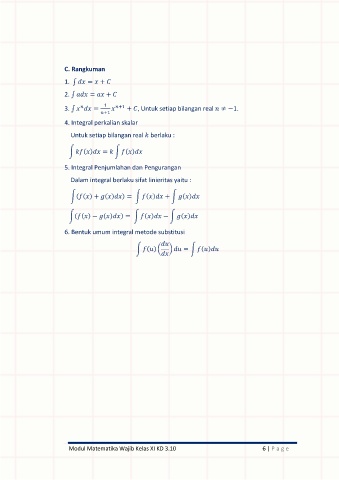 C. Rangkuman
1. ∫ dx = x + C
2. ∫ adx = ax + C
3. ∫ xⁿdx = 1/(n+1) xⁿ⁺¹ + C, Untuk setiap bilangan real n ≠ −1.
4. Integral perkalian skalar
Untuk setiap bilangan real k berlaku :
∫ kf(x)dx = k ∫ f(x)dx
5. Integral Penjumlahan dan Pengurangan
Dalam integral berlaku sifat linieritas yaitu :
∫(f(x) + g(x)dx) = ∫ f(x)dx + ∫ g(x)dx
∫(f(x) − g(x)dx) = ∫ f(x)dx − ∫ g(x)dx
6. Bentuk umum integral metode substitusi
∫ f(u) (du/dx) du = ∫ f(u)du
Modul Matematika Wajib Kelas XI KD 3.10 6 | Page